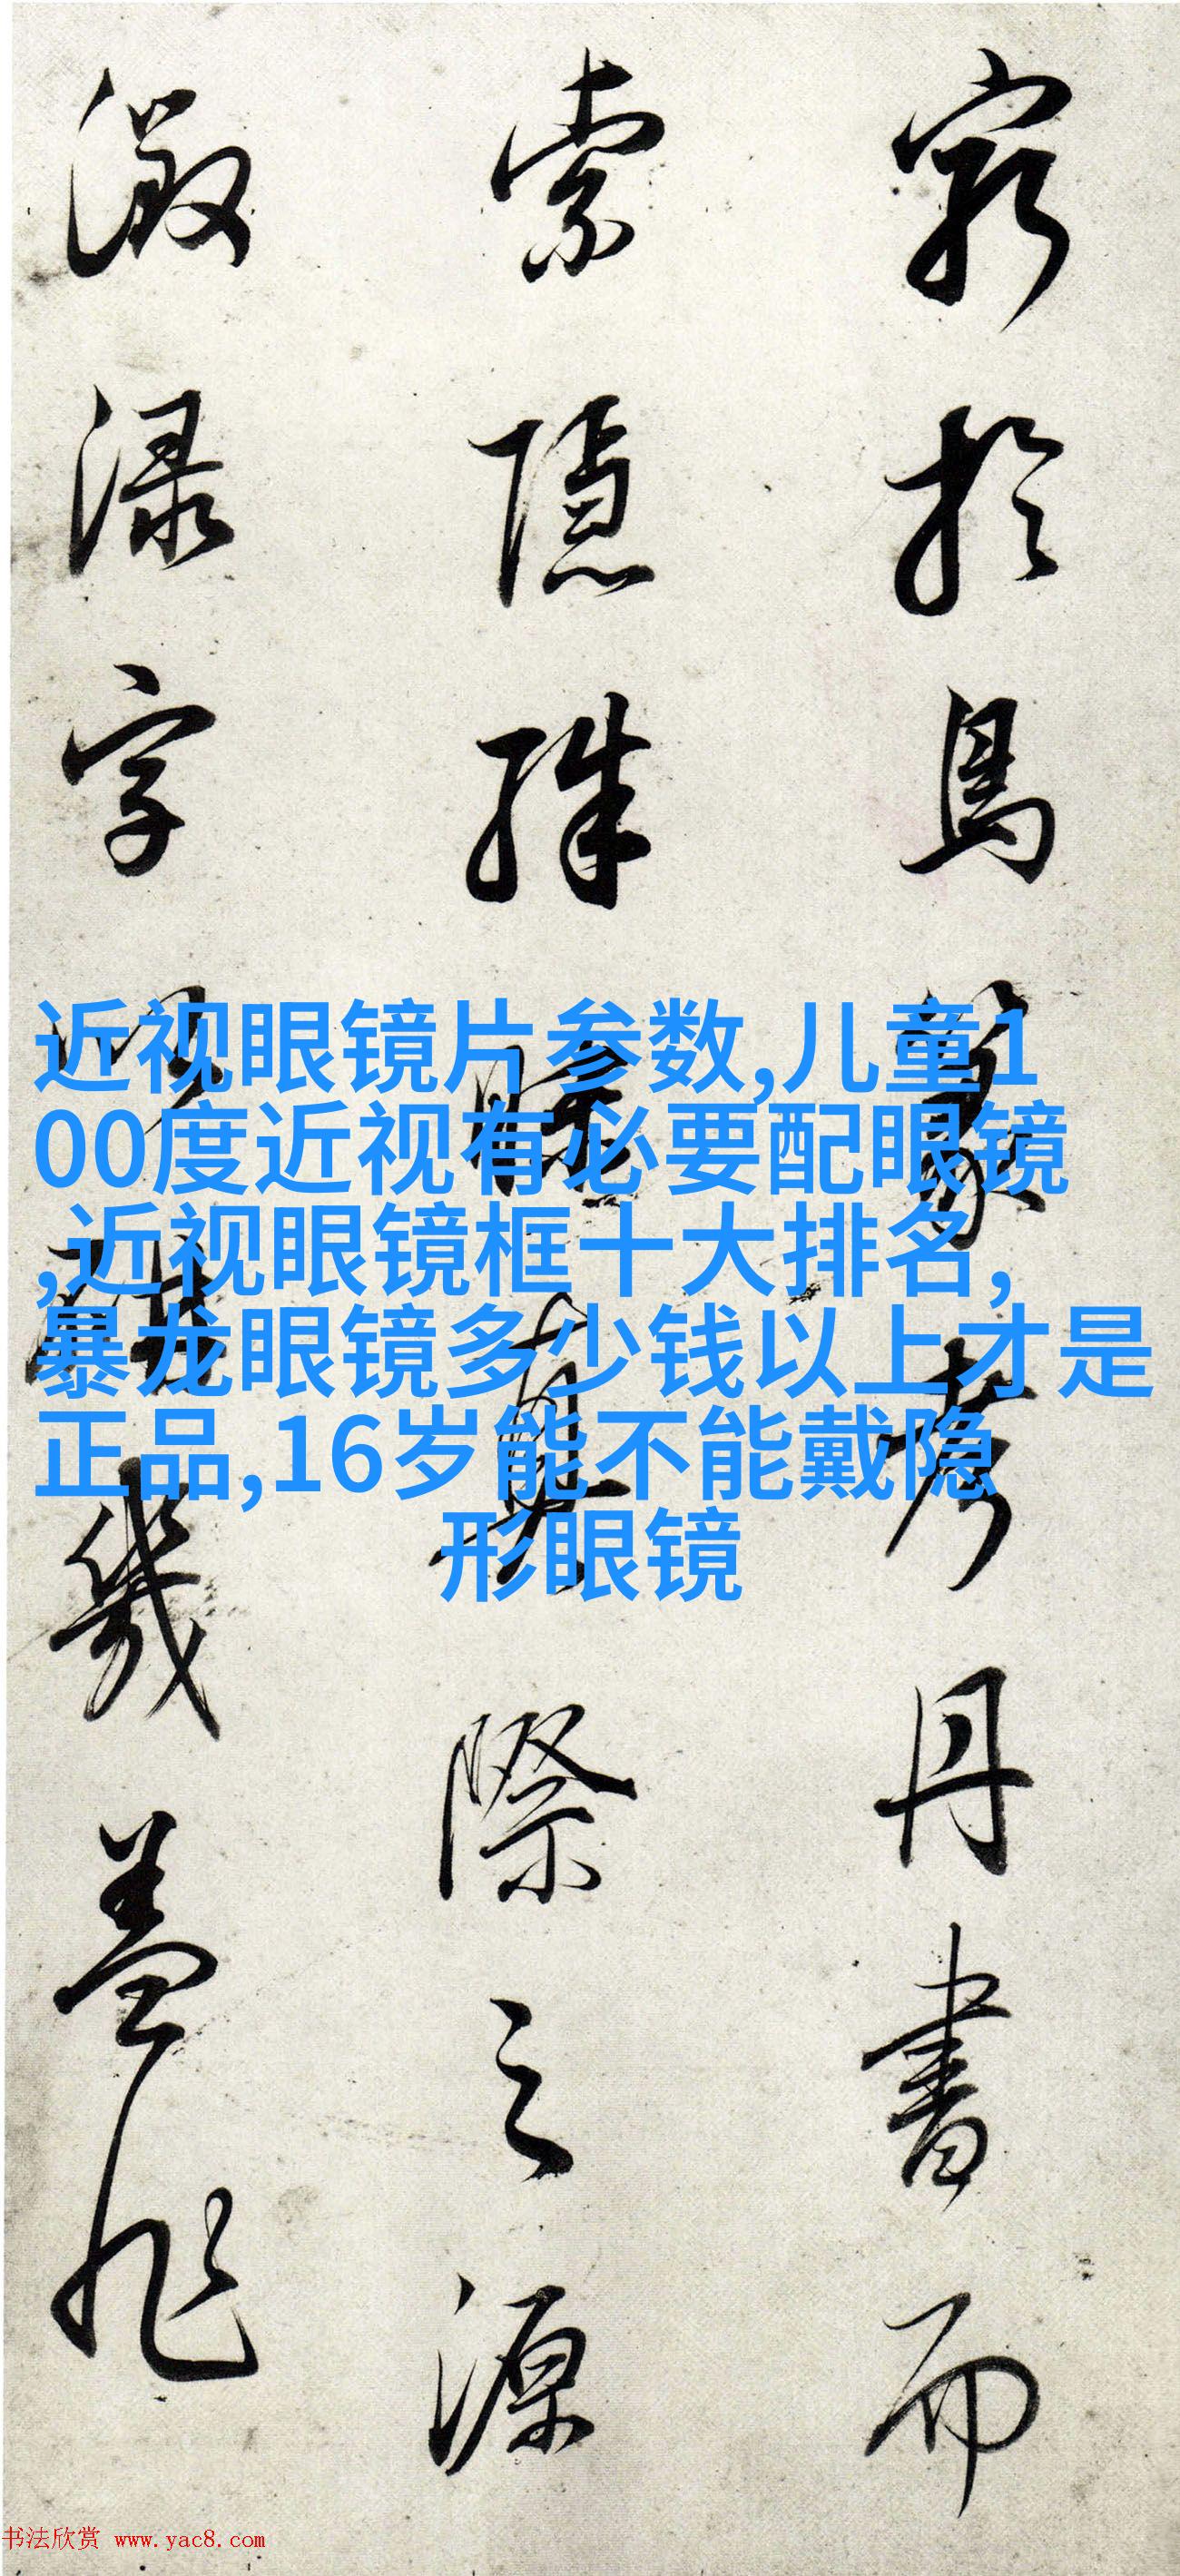 窮於鳥篆考丹書而
索隱殊昧真際之源
澂渌字
幾蓋非
近视眼镜片参数,儿童1
00度近视有必要配眼镜
,近视眼镜框十大排名,
暴龙眼镜多少钱以上才是
正品,16岁能不能戴隐
形眼镜
书法欣赏 www.yac8.com